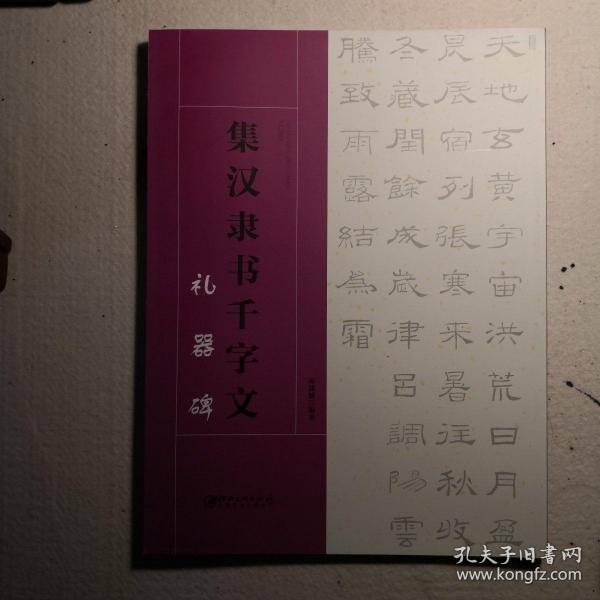 集汉隶书千字文
礼器碑
天地玄黃宇宙洪荒日月盈
昃辰宿列張寒来暑往秋收
冬藏閏餘成歲律呂調陽雲
騰致雨露結為霜
孔夫子旧书网
www.kongfz.com